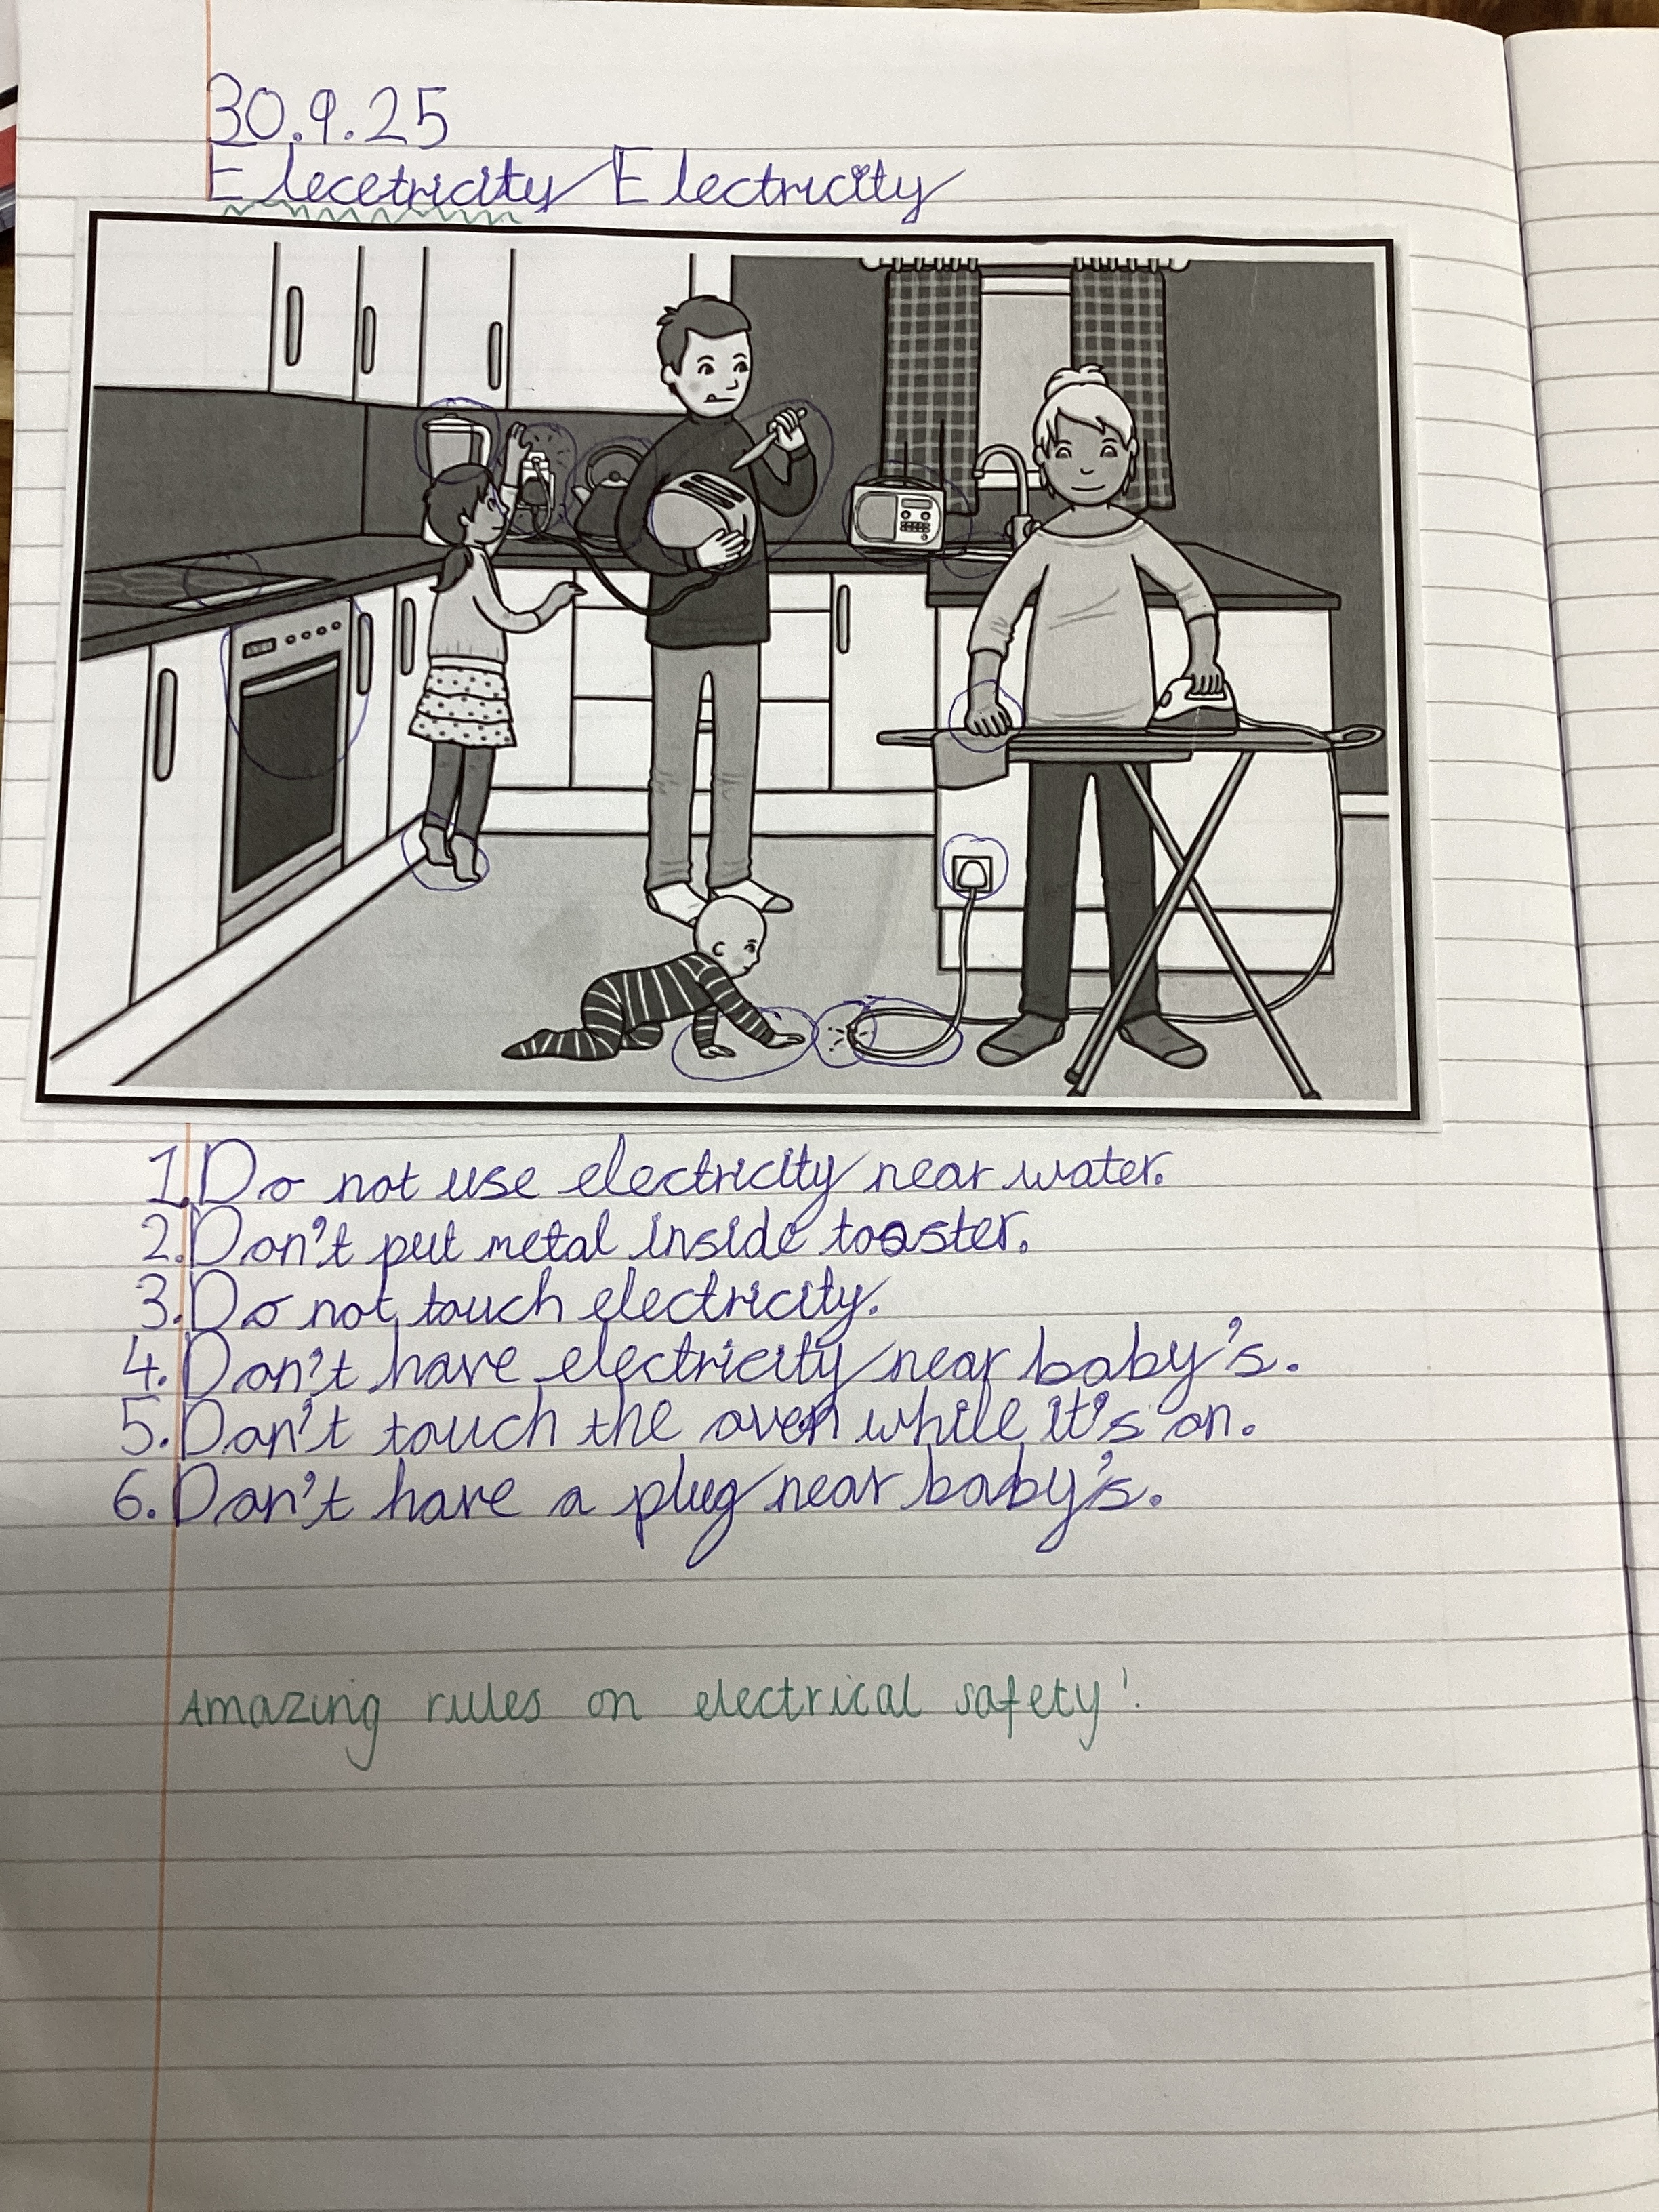 30.9.25
Elecetricity Electricity
1.Do not use electricity near water.
2.Don't put metal inside toaster.
3.Do not touch electricity.
4.Don't have electricity near baby's.
5.Don't touch the oven while it's on.
6.Don't have a plug near baby's.
Amazing rules on electrical safety!